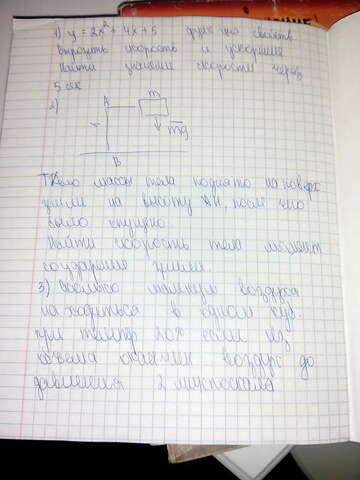 1) y = 2x² + 4x + 5
выразить скорость и ускорение
найти значение скорости через
5 сек
2) A m
h mg
B
Тело массы тела поднято на поверх
земли на высоту H, после чего
было
Найти скорость тела момент
соударение земли.
3) Сколько молекул воздуха
находиться в одном куб.
если
объема воздух до
давления 2